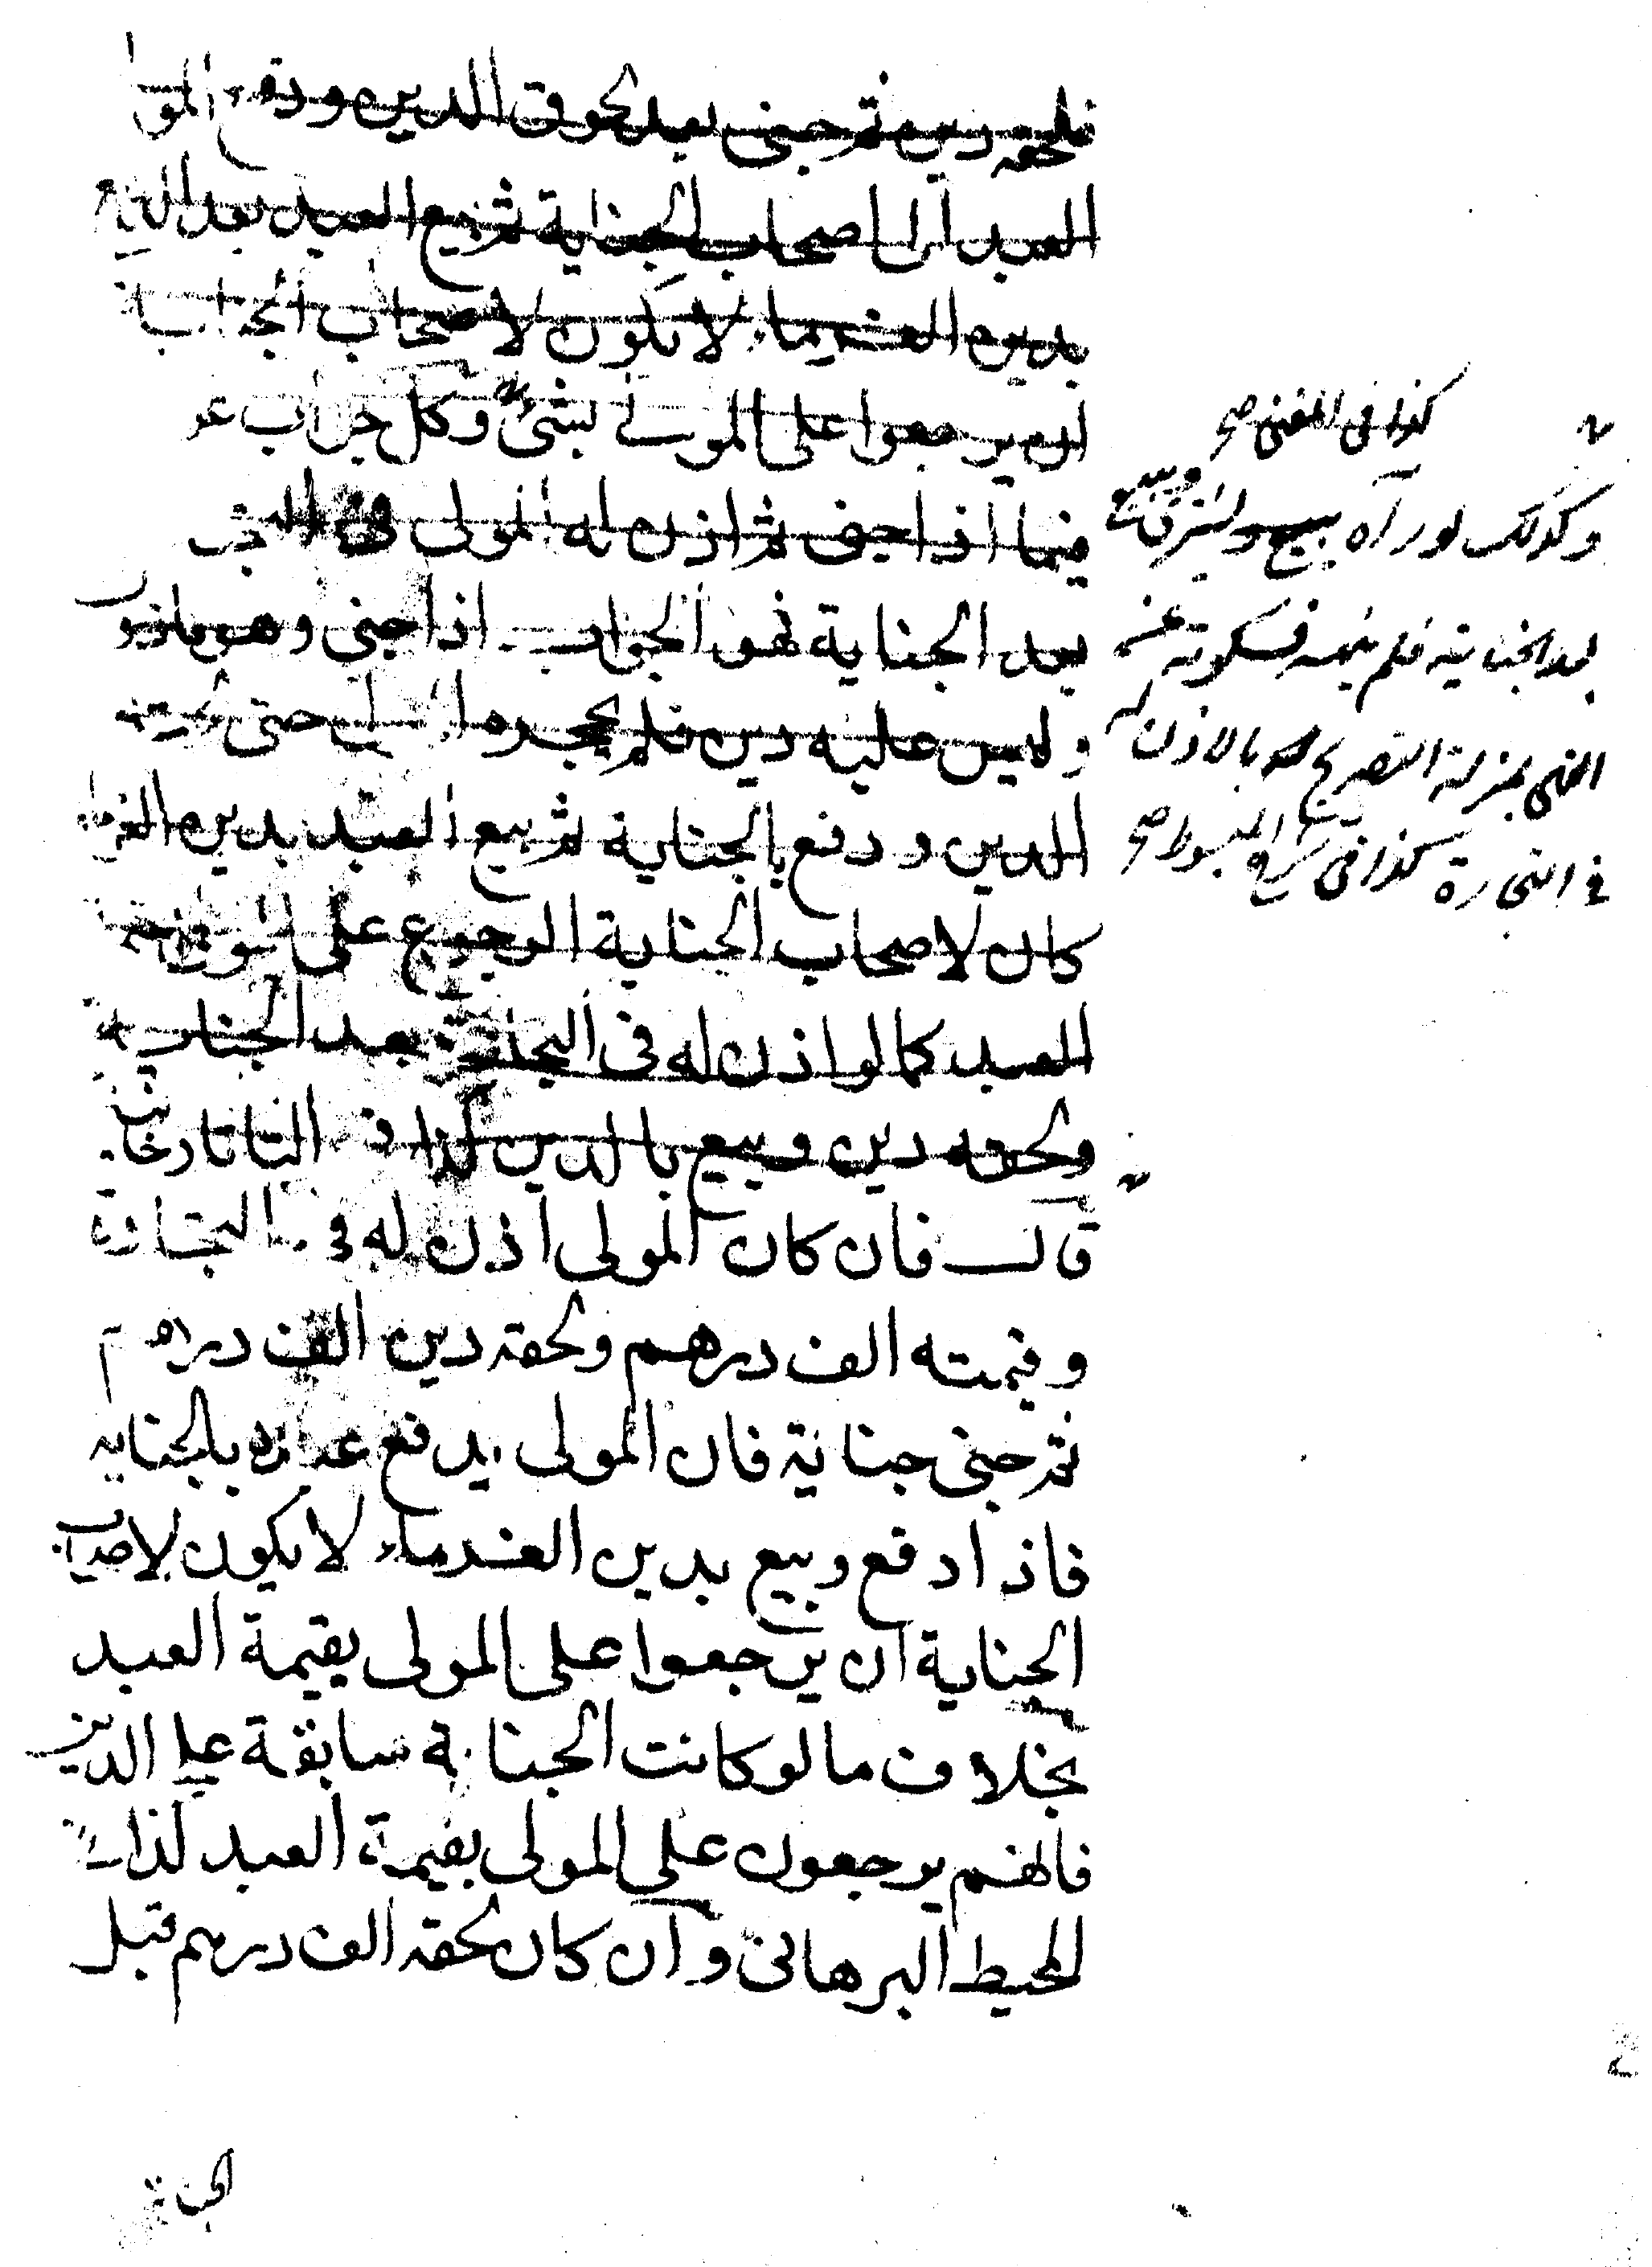 فلحقه دين ثم جنى بعد لحوق الدين ودفع المولى
العبد الى اصحاب الجناية ثم بيع العبد بعد
بدين الغرماء لا يكون لاصحاب الجناية
ان يرجعوا على المولى بشئ وكل جواب
فيما اذا جنى ثم اذن له المولى فى
بعد الجناية فهو الجواب اذا جنى وهو ماذون
وليس عليه دين فلم يحجره المولى حتى لحقه
الدين ودفع بالجناية ثم بيع العبد بدين الغرماء
كان لاصحاب الجناية الرجوع على المولى بقيمة
العبد كما لو اذن له فى التجارة بعد الجناية
ولحقه دين وبيع بالدين كذا فى التاتارخانية
قال فان كان المولى اذن له فى التجارة
وقيمته الف درهم ولحقه دين الف درهم
ثم جنى جناية فان المولى يدفع عبده بالجناية
فاذا دفع وبيع بدين الغرماء لا يكون لاصحاب
الجناية ان يرجعوا على المولى بقيمة العبد
بخلاف ما لو كانت الجناية سابقة على الدين
فانهم يرجعون على المولى بقيمة العبد كذا فى
المحيط البرهانى وان كان لحقه الف درهم قبل
الجناية
كذا فى المغنى صح
وكذلك لو رآه يبيع ويشترى
بعد الجناية فلم ينهه فسكوته عن
النهى بمنزلة التصريح بالاذن له
فى التجارة كذا فى شرح المبسوط صح